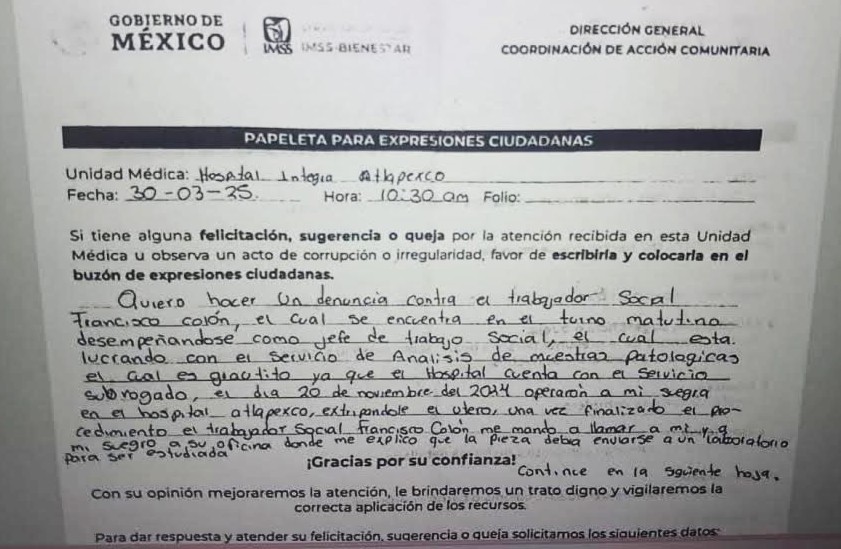 GOBIERNO DE
MÉXICO
IMSS IMSS-BIENESTAR
DIRECCIÓN GENERAL
COORDINACIÓN DE ACCIÓN COMUNITARIA
PAPELETA PARA EXPRESIONES CIUDADANAS
Unidad Médica: Hospital Integra Atlapexco
Fecha: 30-03-25. Hora: 10:30 am Folio:
Si tiene alguna felicitación, sugerencia o queja por la atención recibida en esta Unidad
Médica u observa un acto de corrupción o irregularidad, favor de escribirla y colocarla en el
buzón de expresiones ciudadanas.
Quiero hacer un denuncia contra el trabajador Social
Francisco colón, el cual se encuentra en el turno matutino
desempeñandose como jefe de trabajo Social, el cual esta.
lucrando con el Servicio de Analisis de muestras patologicas
el cual es gractito ya que el Hospital cuenta con el Servicio
subrogado, el dia 20 de noviembre del 2024 operaron a mi suegra
en el hospital atlapexco, extirpandole el utero, una vez finalizado el pro-
cedimiento el trabajador Social francisco Colón me mando a llamar a mi y a
mi suegro a su oficina donde me explico que la pieza debia enviarse a un laboratorio
para ser estudiada
¡Gracias por su confianza!
Contince en la sguiente hoja.
Con su opinión mejoraremos la atención, le brindaremos un trato digno y vigilaremos la
correcta aplicación de los recursos.
Para dar respuesta y atender su felicitación, sugerencia o queja solicitamos los siguientes datos: